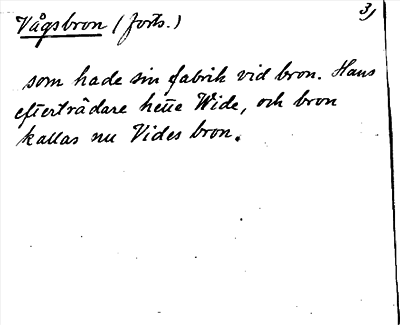 Vågsbron (forts.) 3)
som hade sin fabrik vid bron. Hans
efterträdare hette Wide, och bron
kallas nu Vides bron.